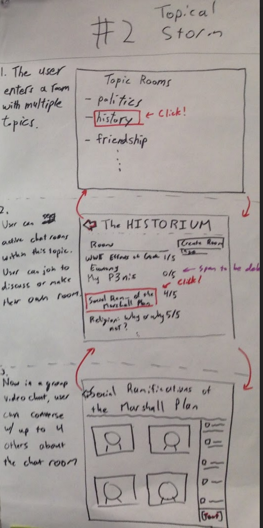 #2 Topical
Storm
1. The user
enters a room
with multiple
topics.
Topic Rooms
- politics
- history ← Click!
- friendship
2.
User can see
active chat rooms
within this topic.
User can join to
discuss or make
their own room.
The HISTORIUM
Rooms
Create Room
WWII Effects on
1/5
Economy
My P3nis 0/5
spam to be
Click!
Social Ram. of the
Marshall Plan 4/5
Religion: Why or why 5/5
not?
3.
Now in a group
video chat, user
can converse
w/ up to 4
others about
the chat room
Social Ramifications of
the Marshall Plan
[Text]